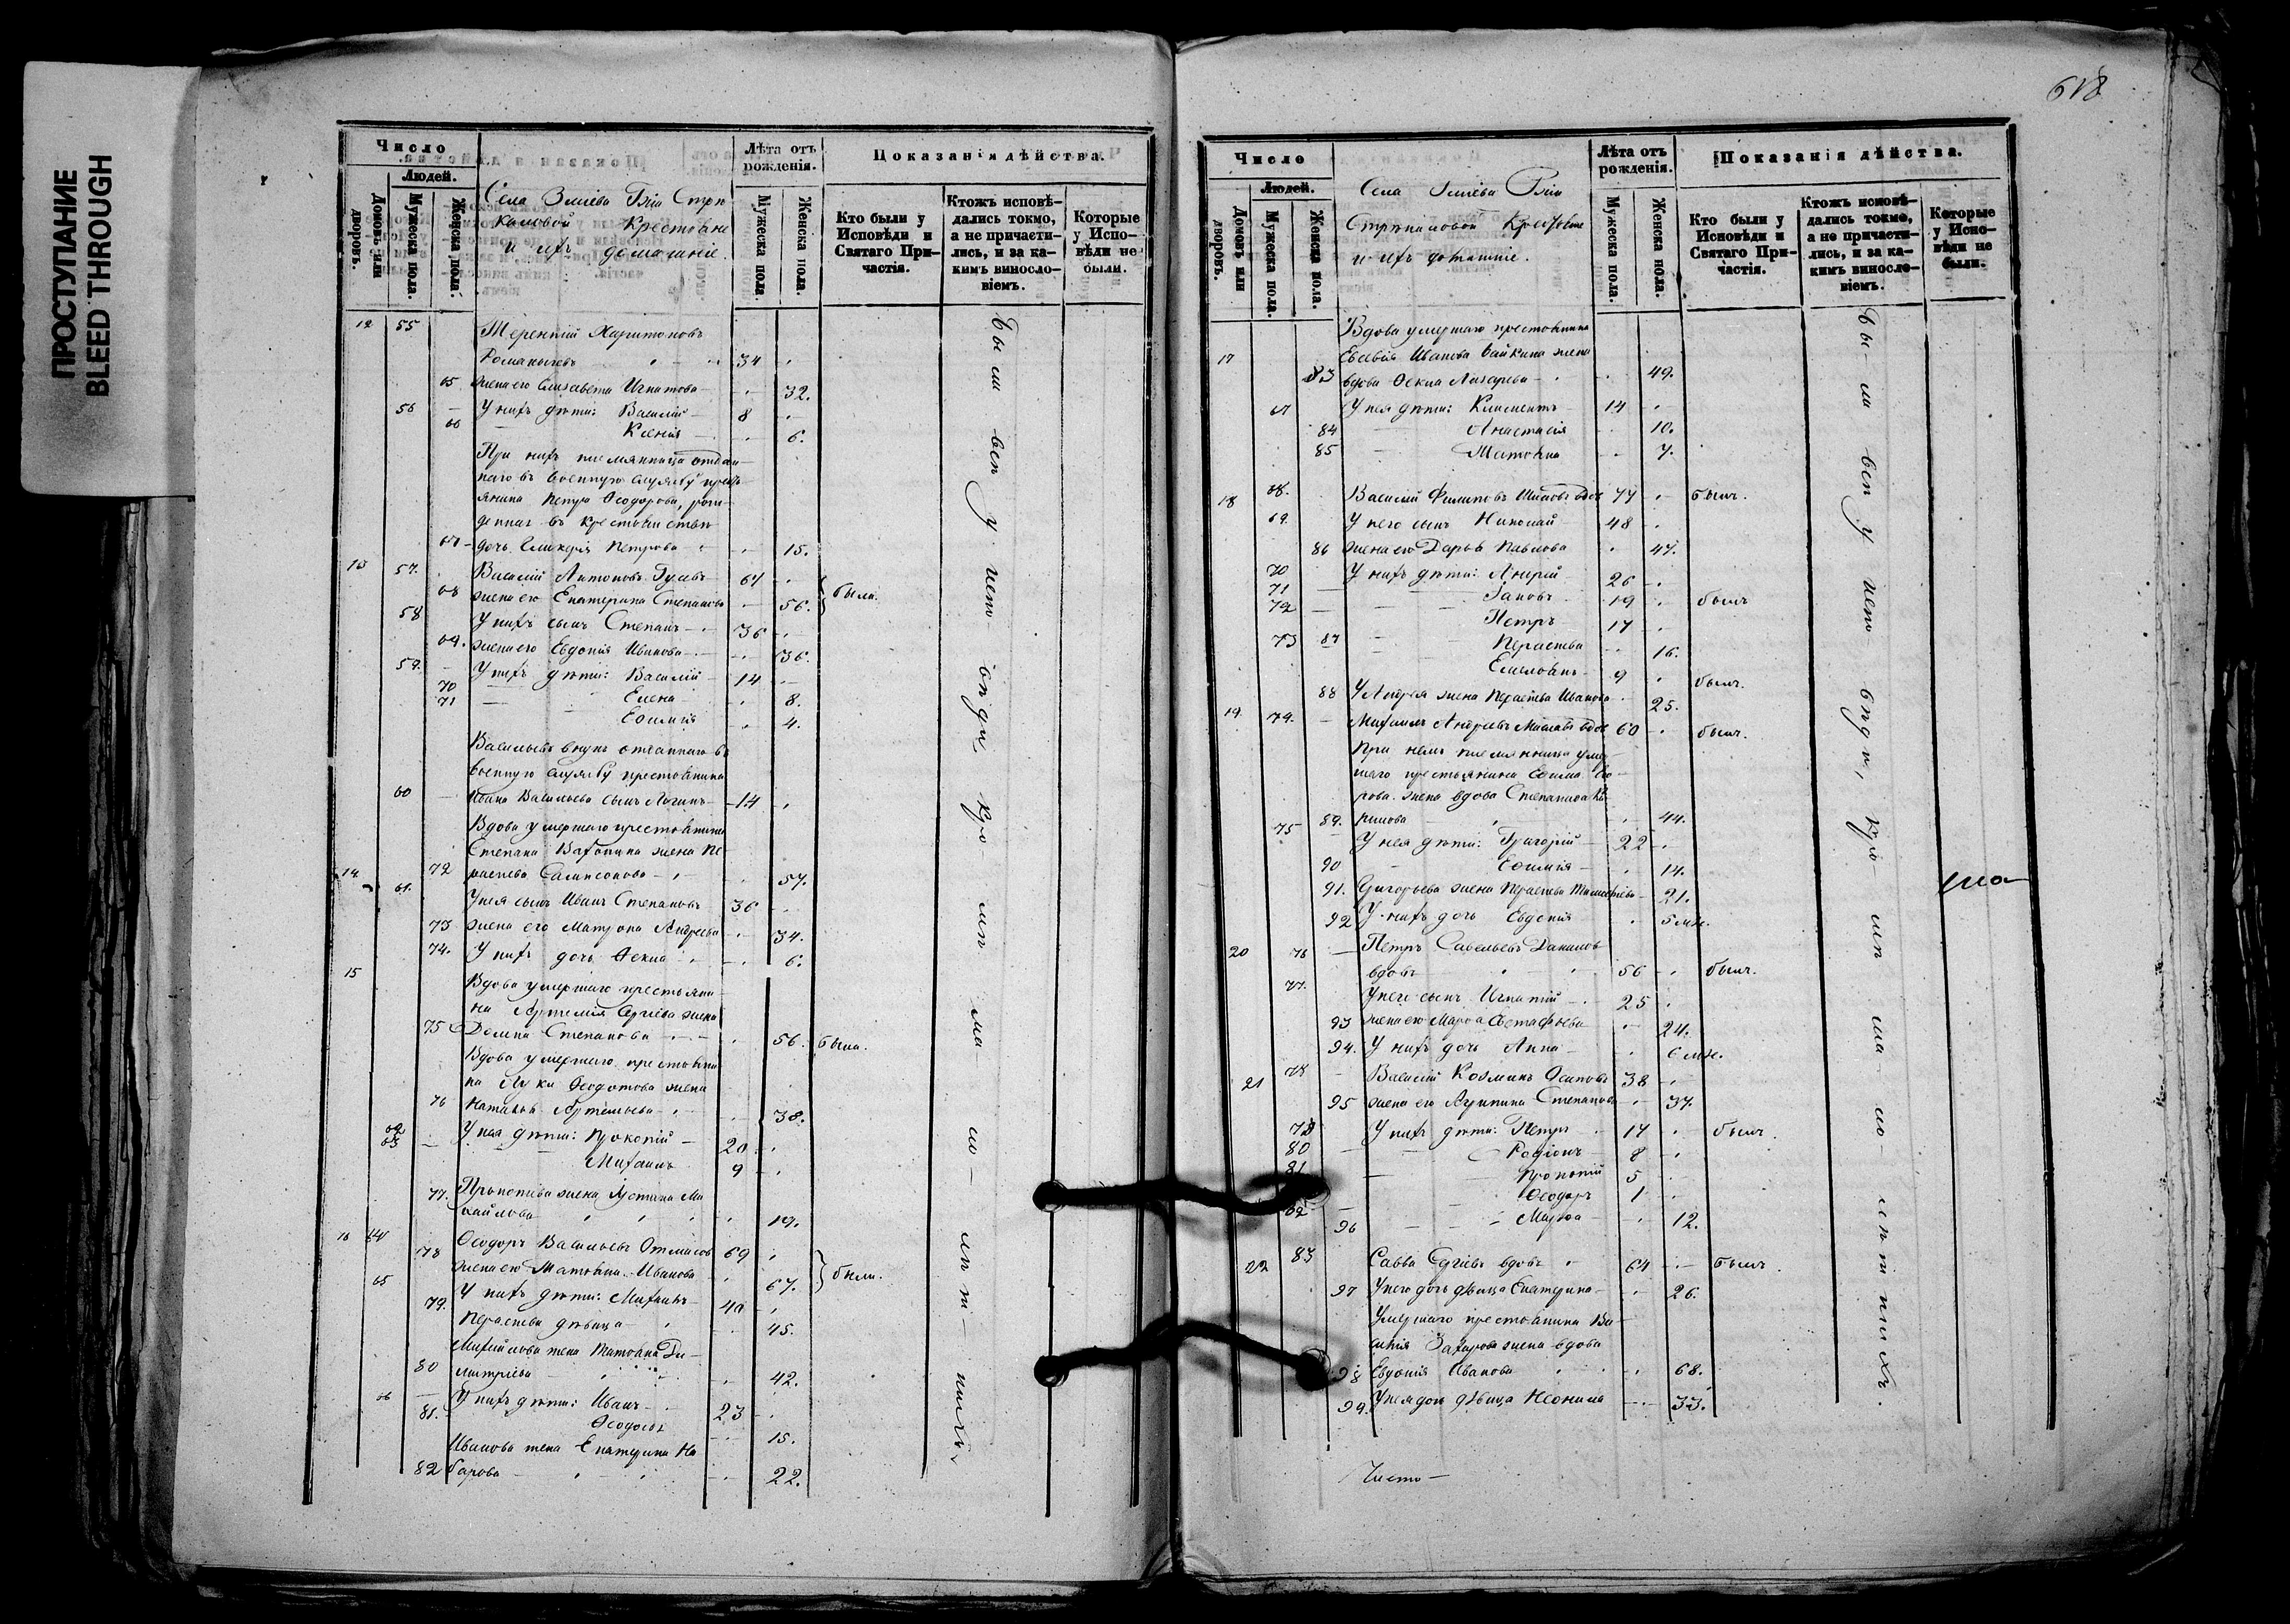 ПРОСТУПАНИЕ
BLEED THROUGH
Число
Людей.
Домовъ или дворовъ.
Мужеска пола.
Женска пола.
Села
Крестьяне
и ихъ домашніе.
Лѣта отъ рожденія.
Мужеска пола.
Женска пола.
Показанія дѣйства.
Кто были у Исповѣди и Святаго Причастія.
Ктожъ исповѣдались токмо, а не причастились, и за какимъ винословіемъ.
Которые у Исповѣди не были.
12 55 Терентій Харитоновъ
Романычевъ 34
65 жена его Елисавета Игнатова 32.
56 У нихъ дѣти: Василій 8
66 Ксенія 6.
При нихъ племянница отдан-
наго въ военную службу кресть-
янина Петра Ѳеодорова, рож-
денная въ крестьянствѣ
67 дочь Гликерія Петрова 15.
13 57. Василій Антоновъ Гусевъ 67
68 жена его Екатерина Степанова 56. были.
58 У нихъ сынъ Степанъ 36
69. жена его Евдокія Иванова 36.
59. У нихъ дѣти: Василій 14
70 Елена 8.
71 Евфимія 4.
Васильевъ внукъ отданнаго въ
военную службу крестьянина
60 Ивана Васильева сынъ Логинъ 14
Вдова умершаго крестьянина
Степана жена Па-
14 72 раскева Сампсонова 57.
61. У нея сынъ Иванъ Степановъ 36
73 жена его Матрона Андреева 34.
74. У нихъ дочь Ѳекла 6.
15 Вдова умершаго крестьяни-
на Артемія Сергіева жена
75 Домна Степанова 56. была.
Вдова умершаго крестьяни-
на Луки Ѳеодотова жена
76 Наталья Артемьева 38.
62 У нея дѣти: Прокопій 20
63 Михаилъ 9
Прокопіева жена Устина Ми-
77. хайлова 19.
16 64 Ѳеодоръ Васильевъ 69
78 жена его Матрона Иванова 67. были.
65 У нихъ дѣти: Михаилъ 40
79. Параскева дѣвица 45.
Михайлова жена Татьяна Ди-
80 митріева 42.
66 У нихъ дѣти: Иванъ 23
81. Ѳеодосья 15.
Иванова жена Екатерина На-
82 зарова 22.
618
Число
Людей.
Домовъ или дворовъ.
Мужеска пола.
Женска пола.
Села
Крестьяне
и ихъ домашніе.
Лѣта отъ рожденія.
Мужеска пола.
Женска пола.
Показанія дѣйства.
Кто были у Исповѣди и Святаго Причастія.
Ктожъ исповѣдались токмо, а не причастились, и за какимъ винословіемъ.
Которые у Исповѣди не были.
Вдова умершаго крестьянина
17 Евсевія Иванова жена
83 вдова Ѳекла Лазарева 49.
67 У нея дѣти: Климентъ 14
84 Анастасія 10.
85 Татьяна 7.
18 68. Василій Филиповъ вдов 77 былъ.
69. У него сынъ Николай 48
86 жена его Дарья Павлова 47.
70 У нихъ дѣти: Андрей 26
71 Іаковъ 19 былъ
72 Петръ 17
73 87 Параскева 16.
Емельянъ 9 былъ.
88 У Андрея жена Параскева Иванова 25.
19 74. Михаилъ Андреевъ вдов 60 былъ.
При немъ племянника умер-
шаго крестьянина Ефима
жена вдова Степанида
89. 44.
75 У нея дѣти: Григорій 22
90 Евфимія 14.
91. Григорьева жена Параскева Тимофеева 21.
92 У нихъ дочь Евдокія 5 мѣ.
20 76 Петръ Савельевъ Даниловъ
вдовъ 56 былъ.
77. У него сынъ Игнатій 25
93 жена его Марѳа Евстафьева 24.
94. У нихъ дочь Анна 6 мѣ.
21 78 Василій Козминъ Осиповъ 38
95 жена его Агрипина Степанова 37.
79 У нихъ дѣти: Петръ 17 былъ.
80 Родіонъ 8
81 Прокопій 5
82 Ѳеодоръ 1
96 Марѳа 12.
22 83 Савва Сергіевъ вдовъ 64 былъ.
97 У него дочь дѣвица Екатерина 26.
Умершаго крестьянина Ва-
силія Захарова жена вдова
98 Евдокія Иванова 68.
99. У нея дочь дѣвица Неонила 33.
Чисто